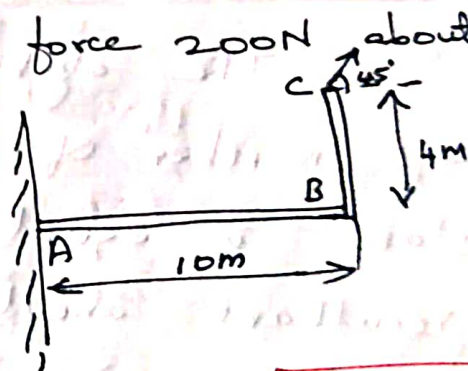 force 200N about
C 45°
4m
B
A
10m